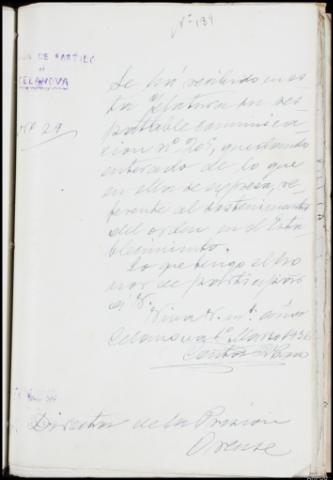 Nº 139
DE PARTIDO
CELANOVA
Nº 29
Se há recibido en es
ta Jefatura su res
petable comunica
cion nº 20, quedando
enterado de lo que
en ella se expresa, re
ferente al sostenimiento
del orden en el Esta
blecimiento.
Lo que tengo el ho
nor de participar
á V.
Viva V. m.s años
Celanova 1º Marzo 1936
Director de la Prision
Orense